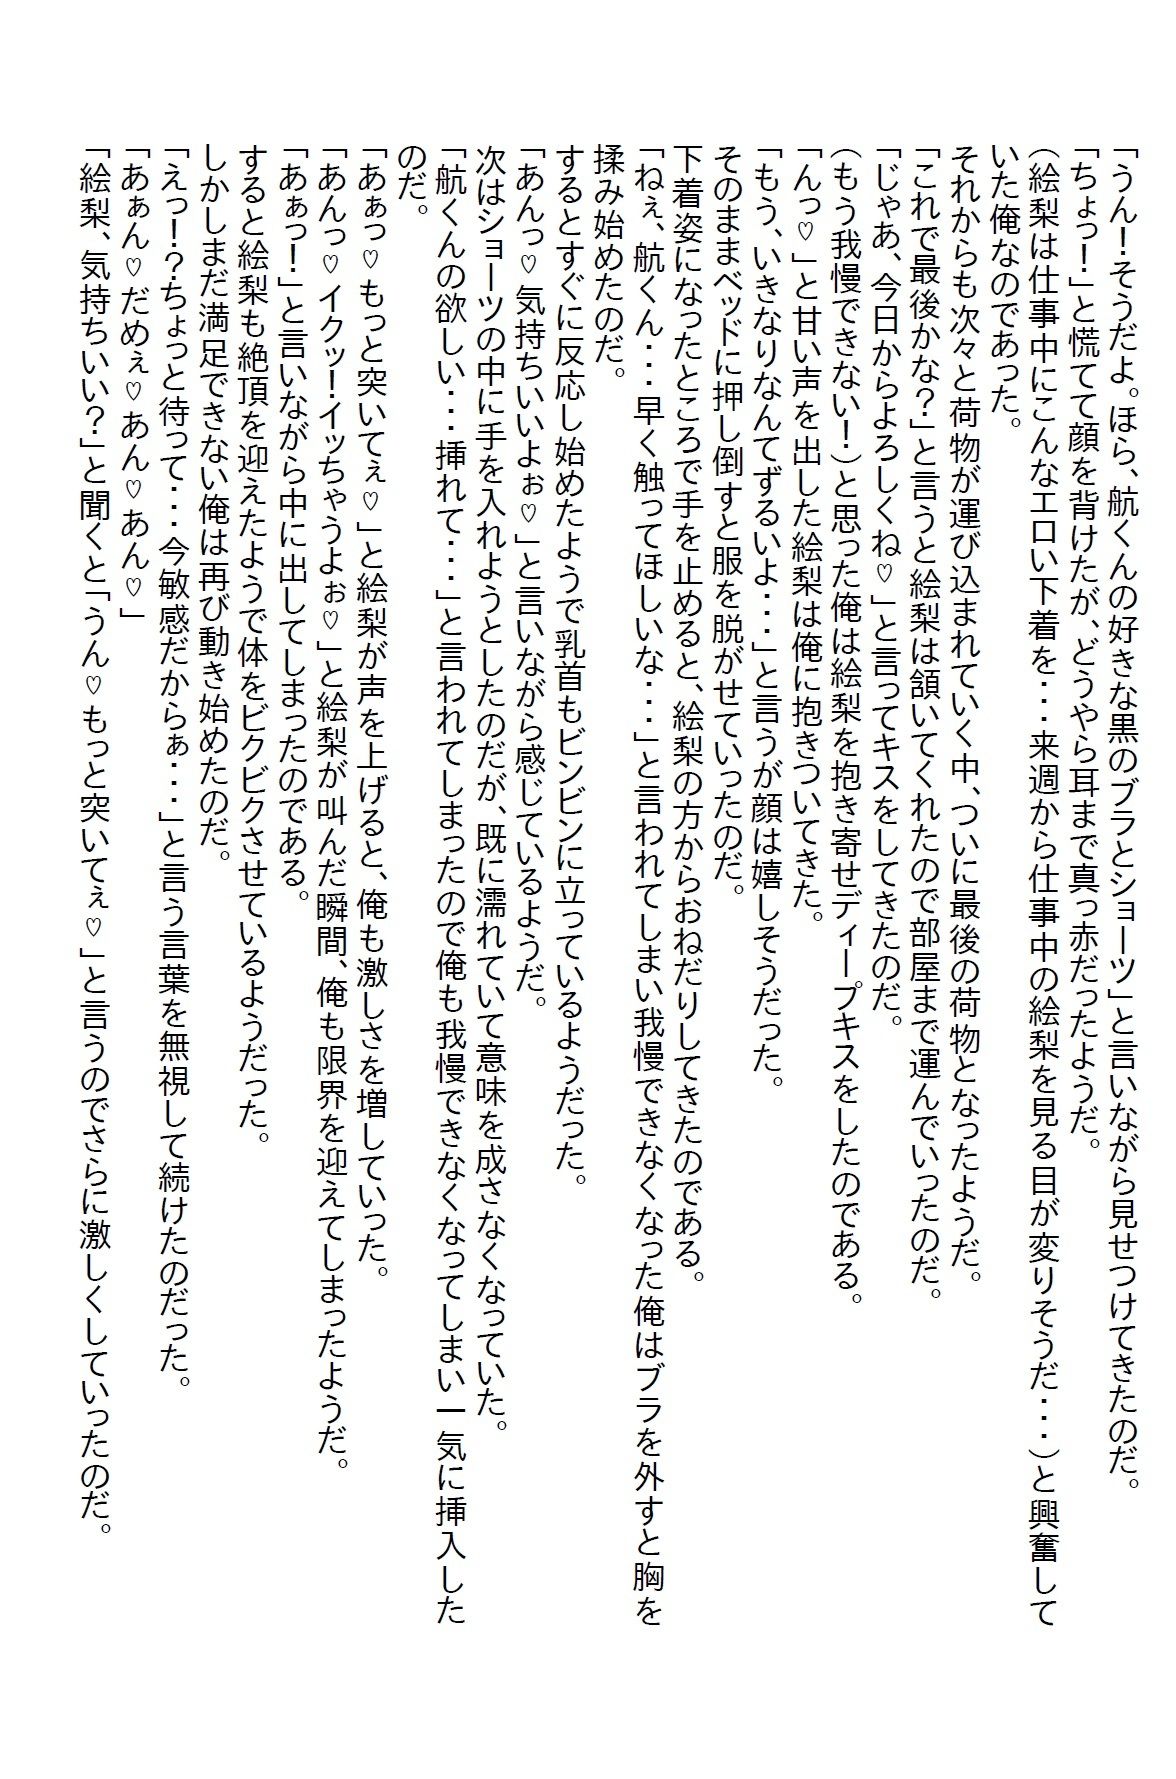 「うん！そうだよ。ほら、航くんの好きな黒のブラとショーツ」と言いながら見せつけてきたのだ。
「ちょっ！」と慌てて顔を背けたが、どうやら耳まで真っ赤だったようだ。
（絵梨は仕事中にこんなエロい下着を・・・来週から仕事中の絵梨を見る目が変りそうだ・・・）と興奮して
いた俺なのであった。
それからも次々と荷物が運び込まれていく中、ついに最後の荷物となったようだ。
「これで最後かな？」と言うと絵梨は頷いてくれたので部屋まで運んでいったのだ。
「じゃあ、今日からよろしくね♡」と言ってキスをしてきたのだ。
（もう我慢できない！）と思った俺は絵梨を抱き寄せディープキスをしたのである。
「んっ♡」と甘い声を出した絵梨は俺に抱きついてきた。
「もう、いきなりなんてずるいよ・・・」と言うが顔は嬉しそうだった。
そのままベッドに押し倒すと服を脱がせていったのだ。
下着姿になったところで手を止めると、絵梨の方からおねだりしてきたのである。
「ねぇ、航くん・・・早く触ってほしいな・・・」と言われてしまい我慢できなくなった俺はブラを外すと胸を
揉み始めたのだ。
するとすぐに反応し始めたようで乳首もビンビンに立っているようだった。
「あんっ♡気持ちいいよぉ♡」と言いながら感じているようだ。
次はショーツの中に手を入れようとしたのだが、既に濡れていて意味を成さなくなっていた。
「航くんの欲しい・・・挿れて・・・」と言われてしまったので俺も我慢できなくなってしまい一気に挿入した
のだ。
「あぁっ♡もっと突いてぇ♡」と絵梨が声を上げると、俺も激しさを増していった。
「あんっ♡イクッ！イッちゃうよぉ♡」と絵梨が叫んだ瞬間、俺も限界を迎えてしまったようだ。
「あぁっ！」と言いながら中に出してしまったのである。
すると絵梨も絶頂を迎えたようで体をビクビクさせているようだった。
しかしまだ満足できない俺は再び動き始めたのだ。
「えっ！？ちょっと待って・・・今敏感だからぁ・・・」と言う言葉を無視して続けたのだった。
「あぁん♡だめぇ♡あん♡あん♡」
「絵梨、気持ちいい？」と聞くと「うん♡もっと突いてぇ♡」と言うのでさらに激しくしていったのだ。